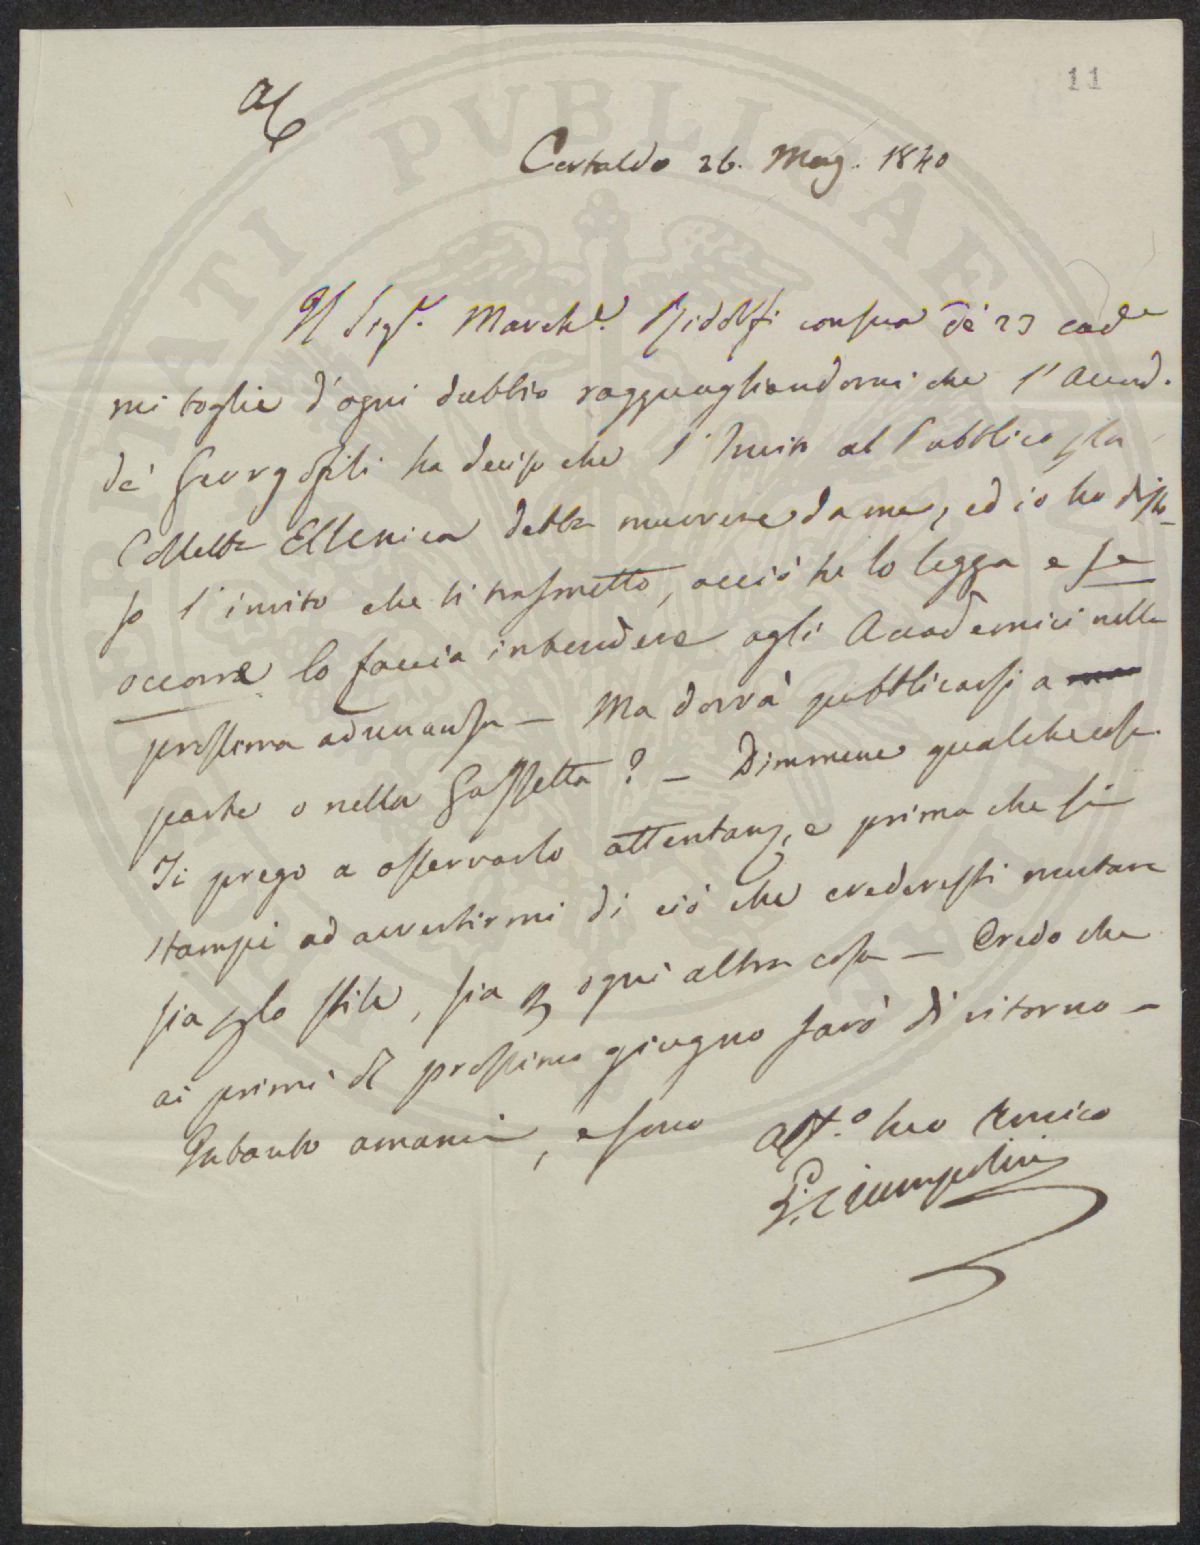 11
AC
Certaldo 26. Mag. 1840
Il Sigr. Marche. Ridolfi con sua de' 23 cade
mi toglie d'ogni dubbio ragguagliandomi che l'Accad.
de' Georgofili ha deciso che l'Invito al Pubblico pla
Colletta Ellenica debba muovere da me, ed io ho diste-
so l'invito che ti trasmetto, acciò tu lo legga e se
occorre lo faccia intendere agli Accademici nella
prossima adunanza - Ma dovrà pubblicarsi a
parte o nella Gazzetta? - Dimmene qualche cosa.
Ti prego a osservarlo attentamte, e prima che si
stampi ad avvertirmi di ciò che crederesti mutare
sia plo stile, sia p ogni altra cosa - Credo che
ai primi del prossimo giugno sarò di ritorno -
Intanto amami, e sono affo. tuo Amico
P. Ciampolini
PVBLICAE